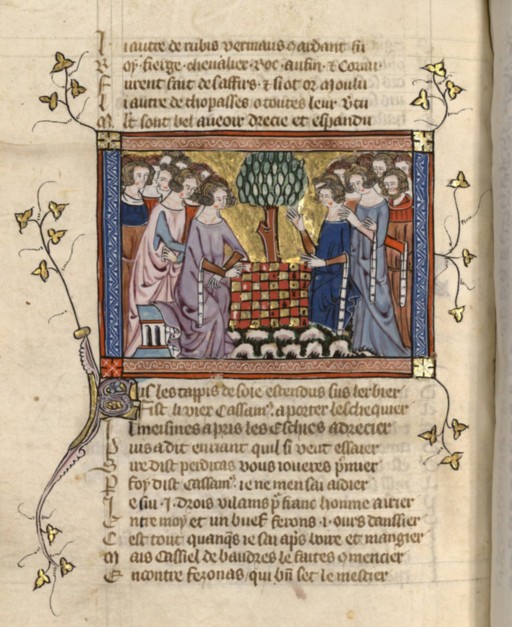 L autre de rubis vermaus & ardant fu
R oy fierge chevalier Roc aufin & Cornu
F urent fait de saffirs & si ot or moulu
L autre de thopasses o toutes leur vtu
M lt sont bel a veoir drecie et espandu
Sus les tappis de soie estendus sus lerbier
Fist li viex Cassamꝰ aporter leschequier
L meismes a pris les Eschies a drecier
P uis a dit en riant qui si veut essaier
S ire dist perdicas vous ioueres pͥmier
P foy dist Cassamꝰ ie ne men sai aidier
J e sui .J. drois vilains pͬ franc honme airier
E ntre moy et un buef ferons .i. ours danssier
C est tout quanqͥs ie sai apͬs boire et mangier
M ais Cassiel de baudres le faites 9mencier
E ncontre fezonas / qui bn̄ set le mestier